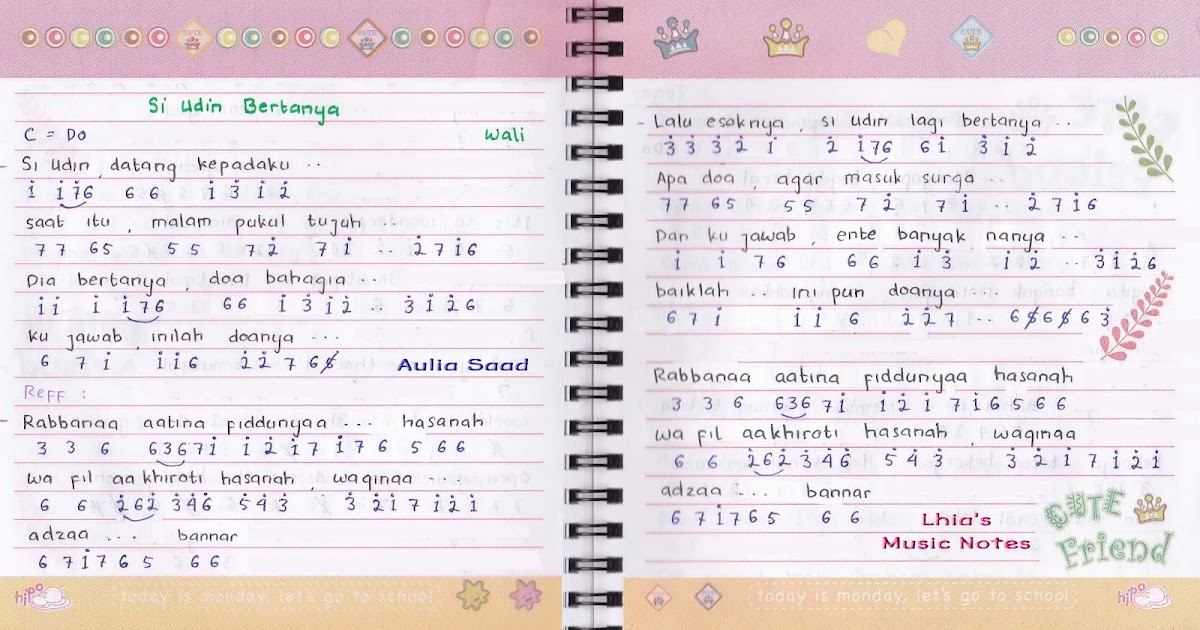 Si Udin Bertanya
C = Do
Wali
Si Udin, datang kepadaku ..
i̇ i̇7̇6 666 i̇ 3̇ i̇ 2̇
saat itu, malam pukul tujuh ...
7 7 65 5 5 7 2̇ 7 i̇ .. 2̇ 7 i̇ 6
Dia bertanya doa bahagia ...
i̇ i̇ i̇ i̇ 7 6 6 6 i̇ 3̇ i̇ 2̇ .. 3̇ i̇ 2̇ 6
ku jawab inilah doanya ...
6 7 i̇ i̇ i̇ 6 2̇ 2̇ 7 6
Aulia Saad
Reff :
Rabbanaa aatina fiddunyaa ... hasanah
3 3 6 6 3 6 7 i̇ i̇ 2̇ i̇ 7 i̇ 7 6 5 6 6
wa fil aakhiroti hasanah, waqinaa ....
6 6 2̇ 6 2̇ 3̇ 4̇ 6̇ 5̇ 4̇ 3̇ 3̇ 2̇ i̇ 7 i̇ 2̇ i̇
adzaa .... bannar
6 7 i̇ 7 6 5 6 6
hipo
today is monday, let's go to school
Lalu esoknya, si udin lagi bertanya ..
3̇ 3̇ 3̇ 2̇ i̇ 2̇ i̇ 7 6 6 i̇ 3̇ i̇ 2̇
Apa doa, agar masuk surga ...
7 7 6 5 5 5 7 2̇ 7 i̇ .. 2̇ 7 i̇ 6
Dan ku jawab, ente banyak nanya ...
i̇ i̇ 7 6 6 6 i̇ 3̇ i̇ 2̇ .. 3̇ i̇ 2̇ 6
baiklah ... ini pun doanya ...
6 7 i̇ i̇ i̇ 6 2̇ 2̇ 7 ..
Rabbanaa aatina fiddunyaa hasanah
3 3 6 6 3 6 7 i̇ i̇ 2̇ i̇ 7 i̇ 6 5 6 6
wa fil aakhiroti hasanah, waqinaa
6 6 2̇ 6 2̇ 3̇ 4̇ 6̇ 5̇ 4̇ 3̇ 3̇ 2̇ i̇ 7 i̇ 2̇ i̇
adzaa .... bannar
6 7 i̇ 7 6 5 6 6
Lhia's
Music Notes
CUTE
Friend
today is monday, let's go to school
hipo